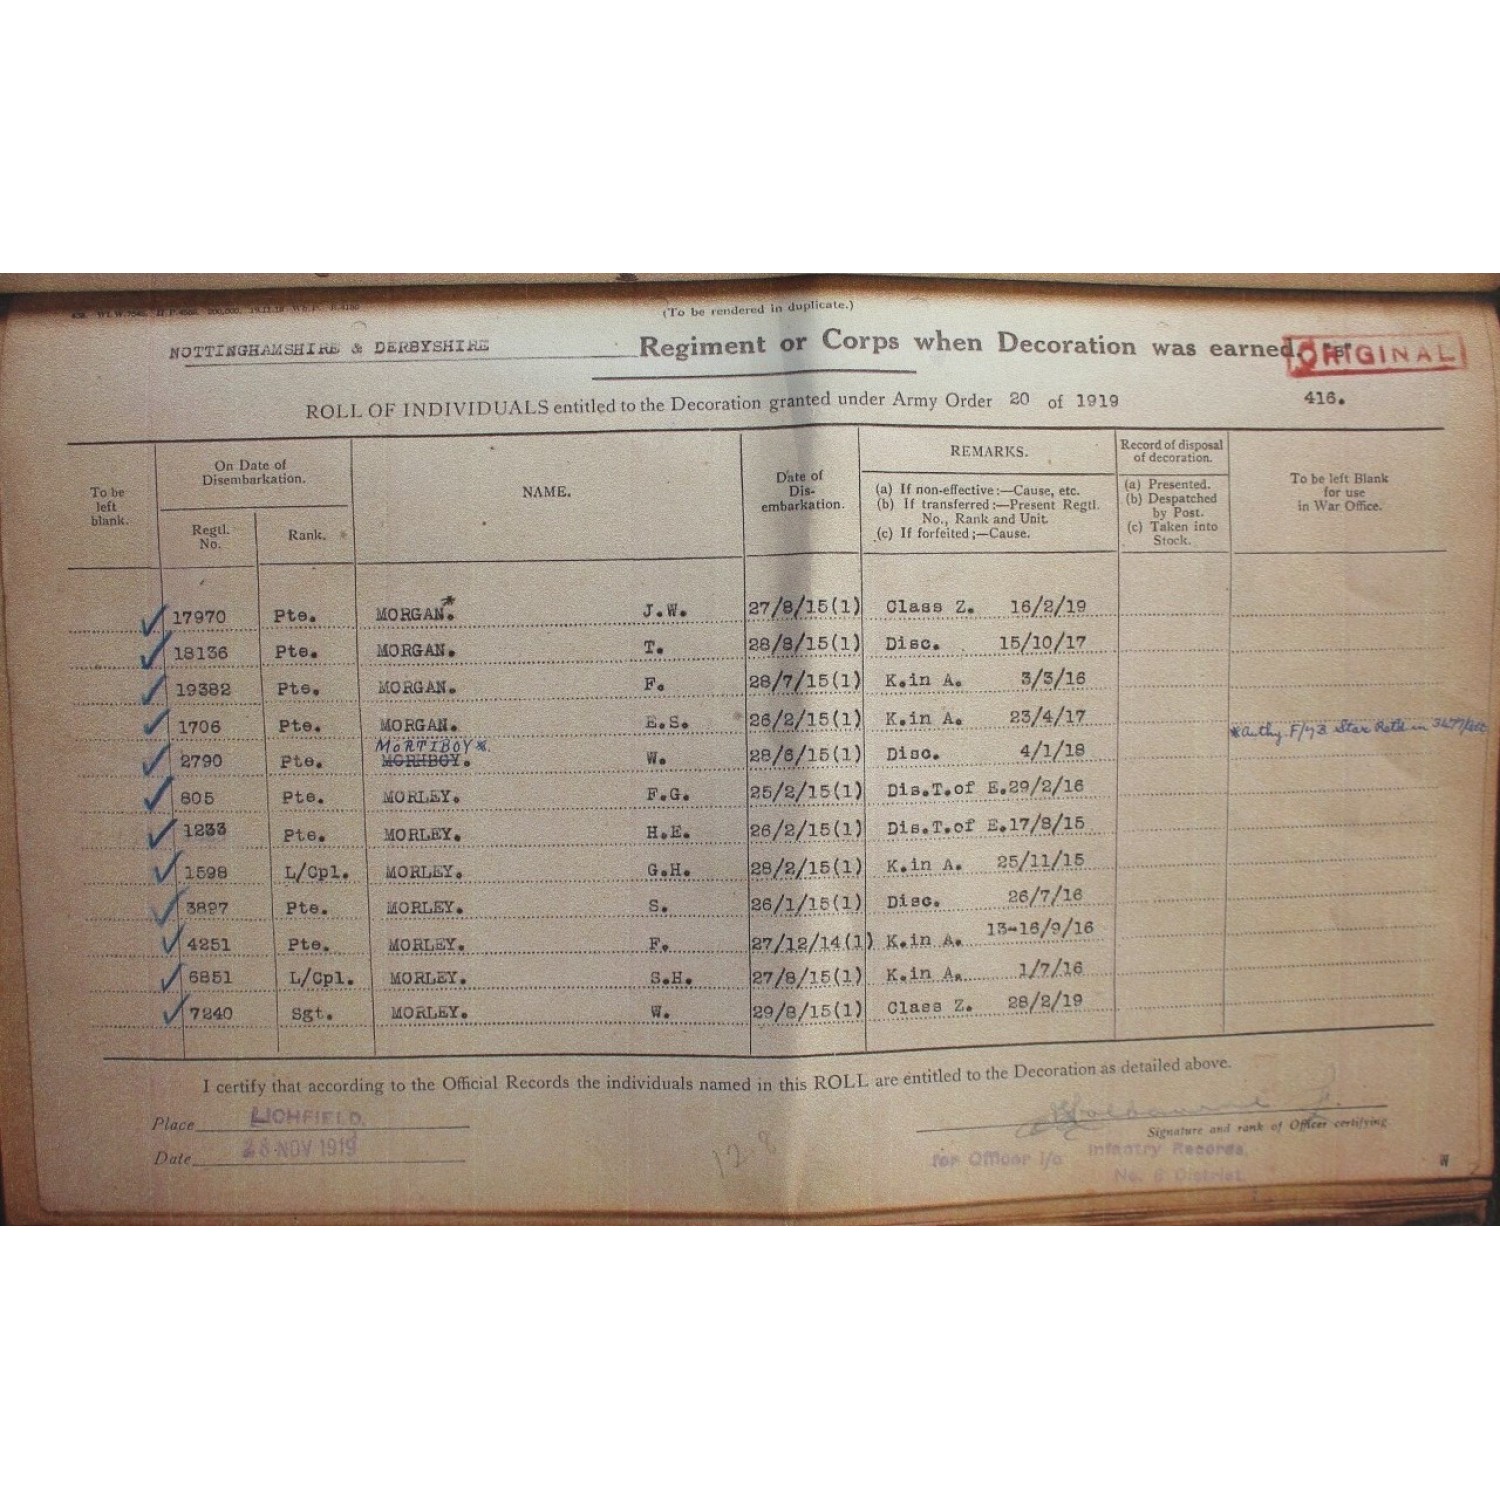 (To be rendered in duplicate.)
NOTTINGHAMSHIRE & DERBYSHIRE Regiment or Corps when Decoration was earned. ORIGINAL
ROLL OF INDIVIDUALS entitled to the Decoration granted under Army Order 20 of 1919 416.
To be left blank.
On Date of Disembarkation.
Regtl. No.
Rank.
NAME.
Date of Dis-embarkation.
REMARKS.
(a) If non-effective:—Cause, etc.
(b) If transferred:—Present Regtl. No., Rank and Unit.
(c) If forfeited;—Cause.
Record of disposal of decoration.
(a) Presented.
(b) Despatched by Post.
(c) Taken into Stock.
To be left Blank for use in War Office.
17970 Pte. MORGAN.* J.W. 27/8/15(1) Class Z. 16/2/19
18136 Pte. MORGAN. T. 28/8/15(1) Disc. 15/10/17
19382 Pte. MORGAN. F. 28/7/15(1) K.in A. 3/3/16
1706 Pte. MORGAN. E.S. 26/2/15(1) K.in A. 23/4/17
MORTIBOY*. *Authy. Star
2790 Pte. MORIBOY. W. 28/6/15(1) Disc. 4/1/18
805 Pte. MORLEY. F.G. 25/2/15(1) Dis.T.of E.29/2/16
1233 Pte. MORLEY. H.E. 26/2/15(1) Dis.T.of E.17/8/15
1598 L/Cpl. MORLEY. G.H. 28/2/15(1) K.in A. 25/11/15
3897 Pte. MORLEY. S. 26/1/15(1) Disc. 26/7/16
4251 Pte. MORLEY. F. 27/12/14(1) K.in A. 13-16/9/16
6851 L/Cpl. MORLEY. S.H. 27/8/15(1) K.in A. 1/7/16
7240 Sgt. MORLEY. W. 29/8/15(1) Class Z. 28/2/19
I certify that according to the Official Records the individuals named in this ROLL are entitled to the Decoration as detailed above.
Place LICHFIELD.
Signature and rank of Officer certifying
Date NOV 1919
for Officer i/c Infantry Records,
No. 6 District.
128
W